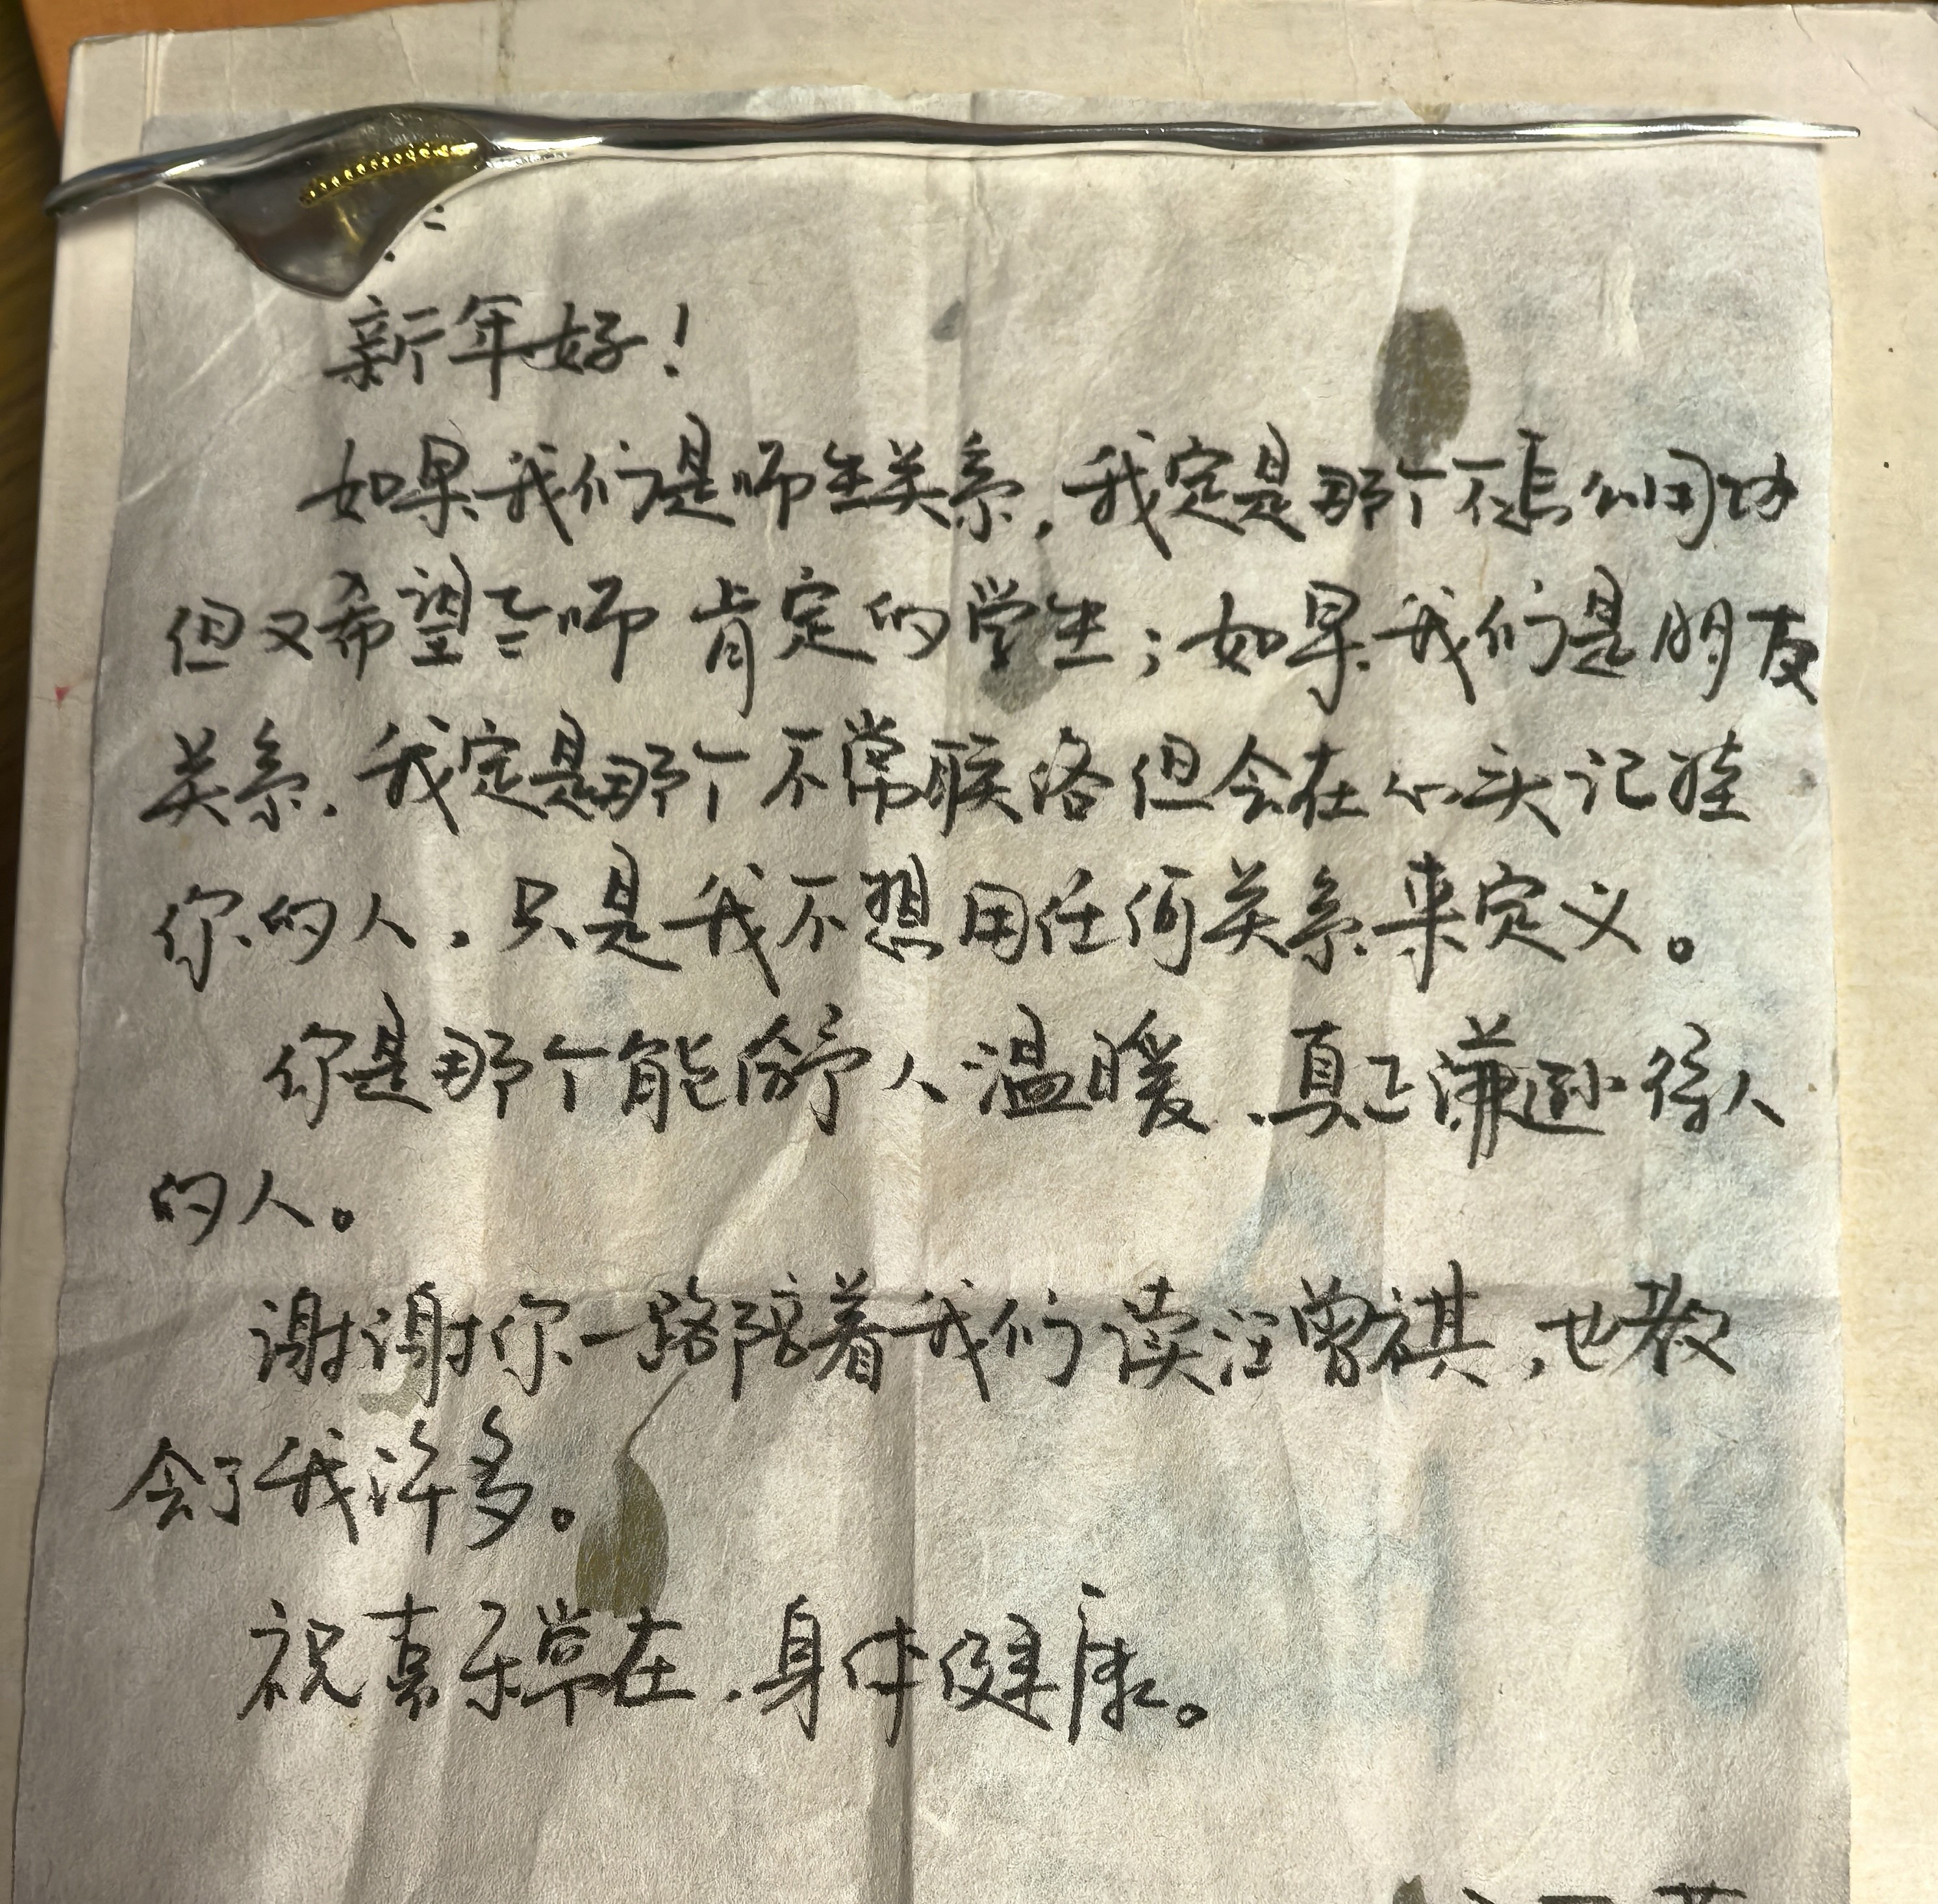 新年好！
如果我们是师生关系，我定是那个不怎么用功
但又希望老师肯定的学生；如果我们是朋友
关系，我定是那个不常联络但会在心头记挂
你的人，只是我不想用任何关系来定义。
你是那个能给予人温暖、真正谦逊待人
的人。
谢谢你一路陪着我们读汪曾祺，也教
会了我许多。
祝喜乐常在，身体健康。